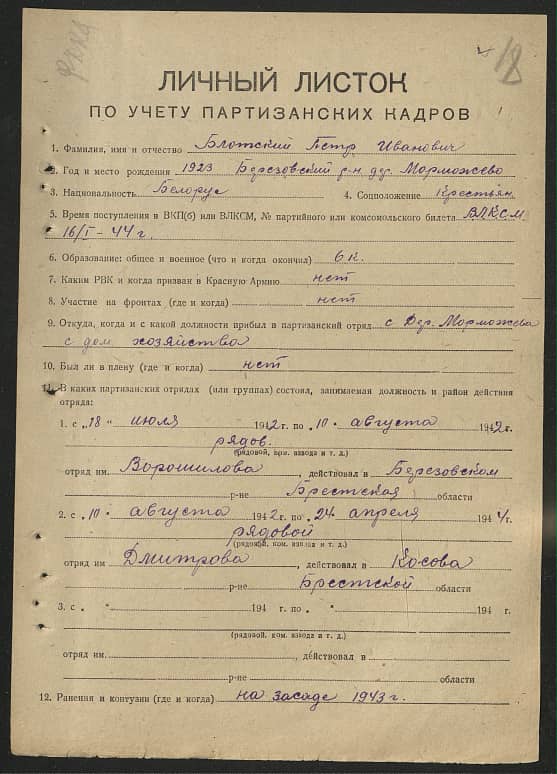 18
ЛИЧНЫЙ ЛИСТОК
ПО УЧЕТУ ПАРТИЗАНСКИХ КАДРОВ
1. Фамилия, имя и отчество Блотский Петр Иванович
2. Год и место рождения 1923 Березовский р-н дер. Морможево
3. Национальность Белорус 4. Соцположение Крестьян.
5. Время поступления в ВКП(б) или ВЛКСМ, № партийного или комсомольского билета ВЛКСМ
16/I - 44 г.
6. Образование: общее и военное (что и когда окончил) 6 к.
7. Каким РВК и когда призван в Красную Армию нет
8. Участие на фронтах (где и когда) нет
9. Откуда, когда и с какой должности прибыл в партизанский отряд с Дер. Морможева
с дом. хозяйства
10. Был ли в плену (где и когда) нет
11. В каких партизанских отрядах (или группах) состоял, занимаемая должность и район действия
отряда:
1. с "18" июля 1942 г. по "10" августа 1942 г.
рядов.
(рядовой, ком. взвода и т. д.)
отряд им. Ворошилова, действовал в Березовском
р-не Брестская области
2. с "10" августа 1942 г. по "24" апреля 1944 г.
рядовой
(рядовой, ком. взвода и т. д.)
отряд им Дмитрова, действовал в Косова
р-не Брестской области
3. с " " 194 г. по " " 194 г.
(рядовой, ком. взвода и т. д.)
отряд им. , действовал в
р-не области
12. Ранения и контузии (где и когда) на засаде 1943 г.